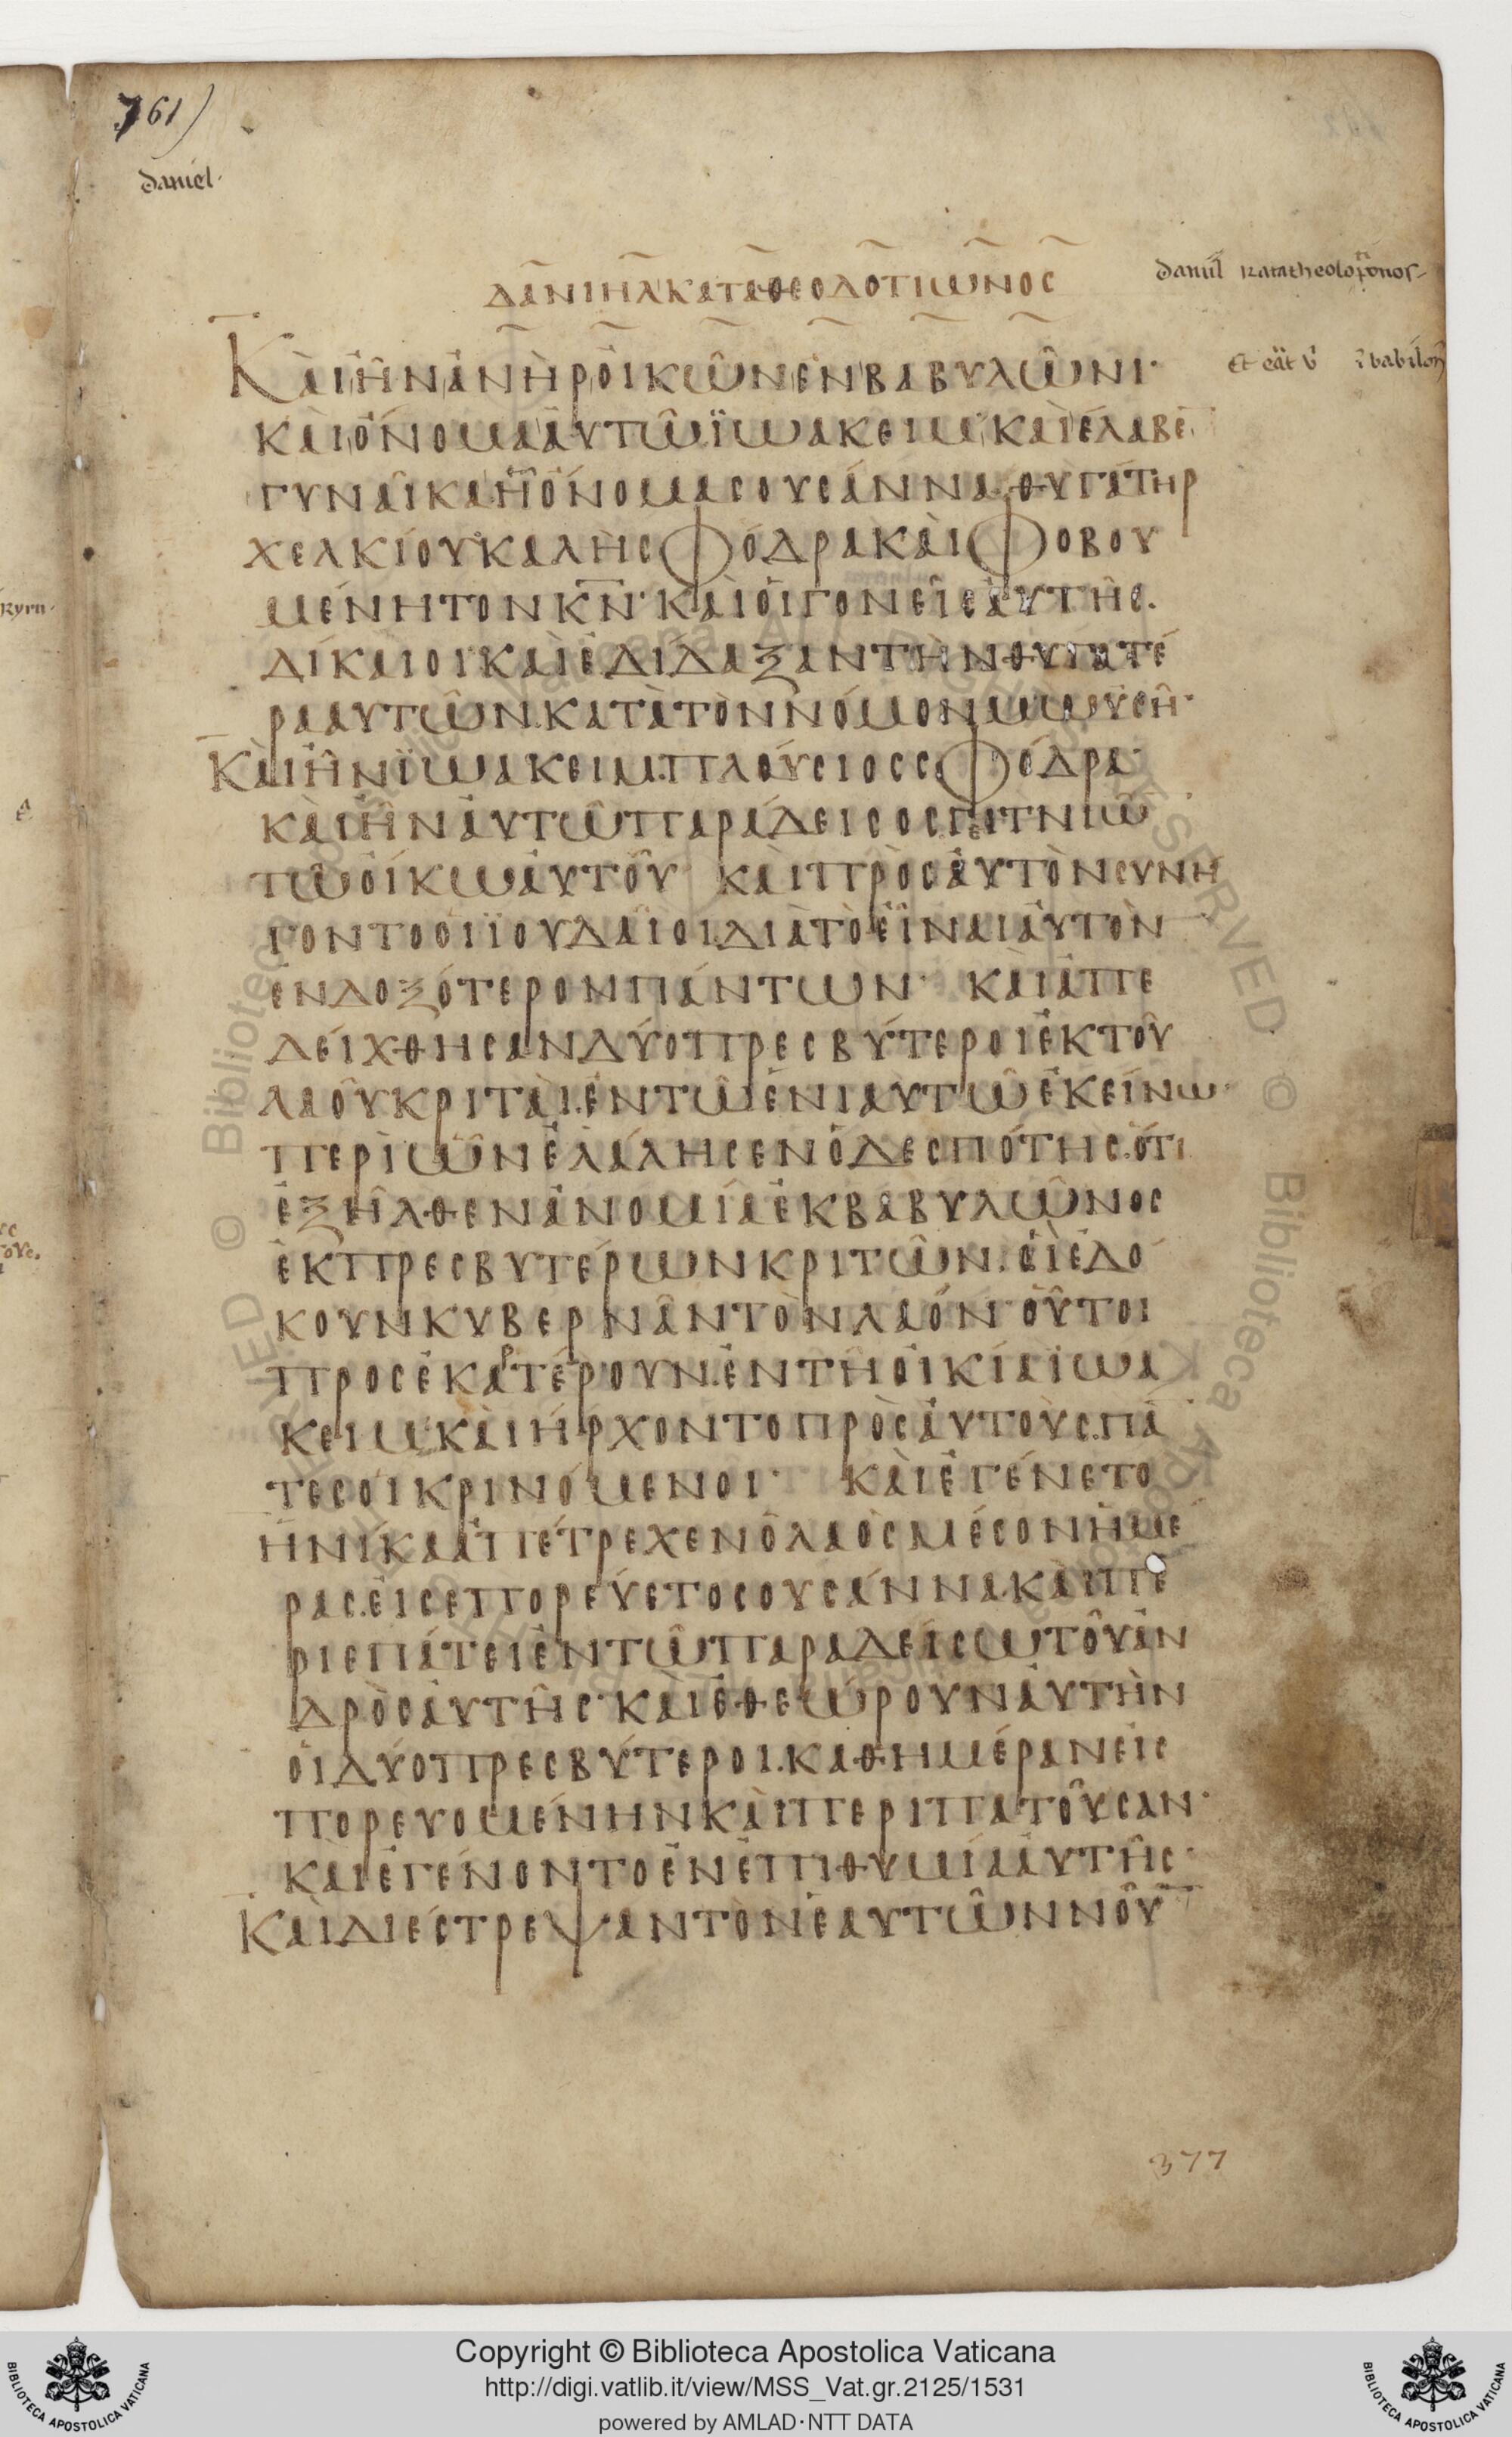 761)
daniel·
ΔΑΝΙΗΛ ΚΑΤΑ ΘΕΟΔΟΤΙΩΝΟΣ
Κὰι ἦν ἀνὴρ ὀικῶν ἐν βαβυλῶνι·
κὰι ὄνομα ἀυτῶ ϊωακειμ· κὰι ἔλαβε̅
γυνᾶικα ἧ ὄνομα σουσάννα θυγάτηρ
χελκίου καλὴ σφόδρα κὰι φοβου
μένη τον κ̅ν̅· κὰι ὁι γονεῖς ἀυτῆς.
δίκαιοι κὰι ἐδίδαξαν τὴν θυγατέ
ρα αυτῶν. κατὰ τὸν νόμον μωυσῆ·
Κὰι ἦν ϊωακειμ. πλούσιος σφόδρα·
κὰι ἦν ἀυτῶ παράδεισος γειτνιῶ̅
τῶ ὀίκω ἀυτοῦ κὰι πρὸς ἀυτὸν συνή
γοντο οἱ ϊουδαῖοι. διὰ τὸ εἶναι ἀυτὸν
ἐνδοξότερον πάντων· κὰι ἀπε
δείχθησαν δύο πρεσβύτεροι ἐκ τοῦ
λαοῦ κριτὰι. ἐν τῶ ἐνιαυτῶ ἐκείνω·
περὶ ὧν ἐλάλησεν ὁ δεσπότης. ὅτι
ἐξῆλθεν ἀνομία ἐκ βαβυλῶνος
ἐκ πρεσβυτέρων κριτῶν. ὁὶ ἐδό
κουν κυβερνᾶν τὸν λαόν· οὗτοι
προσεκαρτέρουν. ἐν τῆ ὀικία ϊωα
κειμ· κὰι ἤρχοντο πρὸς ἀυτοὺς. πά̅
τες οἱ κρινόμενοι· κὰι ἐγένετο
ἡνίκα ἀπέτρεχεν ὁ λαὸς μέσον ἡμέ
ρας. ἐισεπορεύετο σουσάννα. κὰι πε
ριεπάτει ἐν τῶ παραδείσω τοῦ ἀν
δρὸς ἀυτῆς· κὰι ἐθεώρουν ἀυτὴν
ὁι δύο πρεσβύτεροι. καθημέραν εἰς
πορευομένην κὰι περιπατοῦσαν·
κὰι ἐγένοντο ἐν ἐπιθυμία ἀυτῆς·
Κὰι διέστρεψαν τὸν ἑαυτῶν νοῦ̅
377
Copyright © Biblioteca Apostolica Vaticana
http://digi.vatlib.it/view/MSS_Vat.gr.2125/1531
powered by AMLAD·NTT DATA
BIBLIOTECA APOSTOLICA VATICANA
BIBLIOTECA APOSTOLICA VATICANA